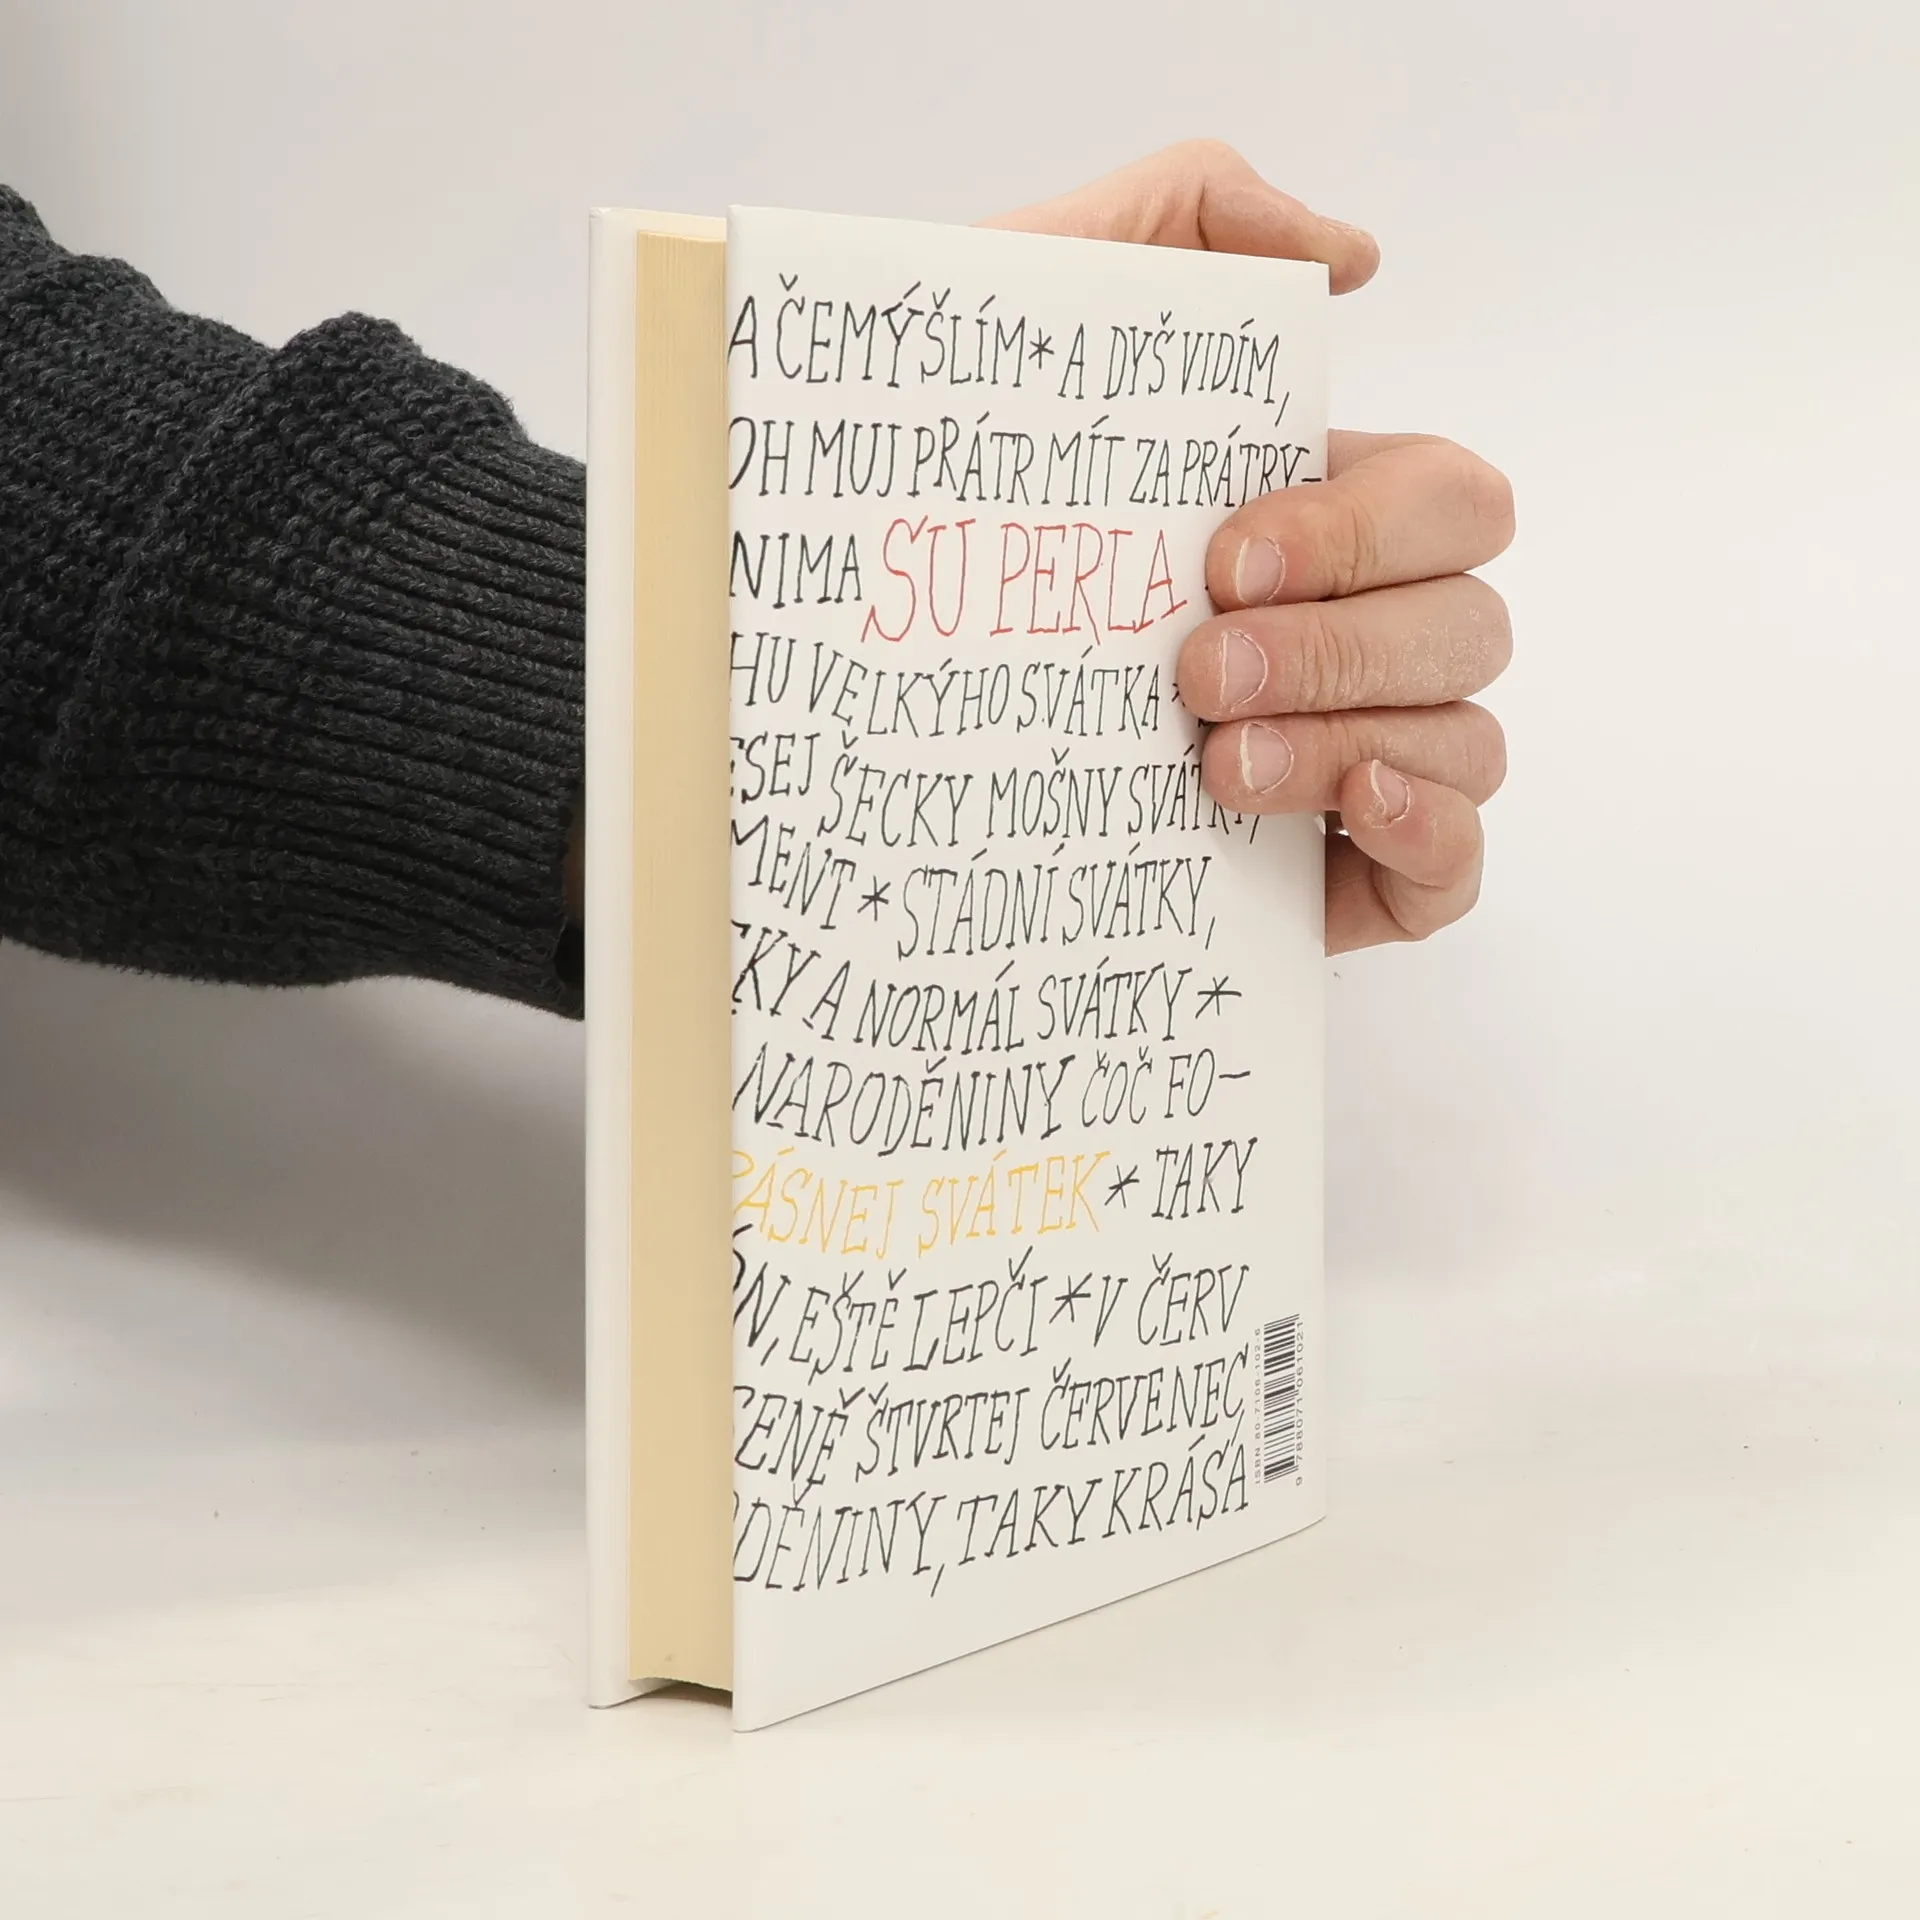 A ČEMÝŠLÍM * A DYŠ VIDÍM,
OH MUJ PRÁTR MÍT ZA PRÁTRY-
NIMA SU PERLA
HU VELKÝHO SVÁTKA *
ESEJ ŠECKY MOŠNY SVÁTKY,
MENT * STÁDNÍ SVÁTKY,
KY A NORMÁL SVÁTKY *
NARODĚNINY ČOČ FO-
ÁSNEJ SVÁTEK * TAKY
N, EŠTĚ LEPČI * V ČERV
ENĚ ŠTVRTEJ ČERVENEC,
DĚNINY, TAKY KRÁSÁ
ISBN 80-7106-102-6
9 788071 061021